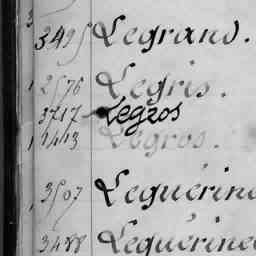 3495 Legrand.
2576 Legris.
3717 Legros
1413 Legros.
3507 Leguérine
3488 Leguérine